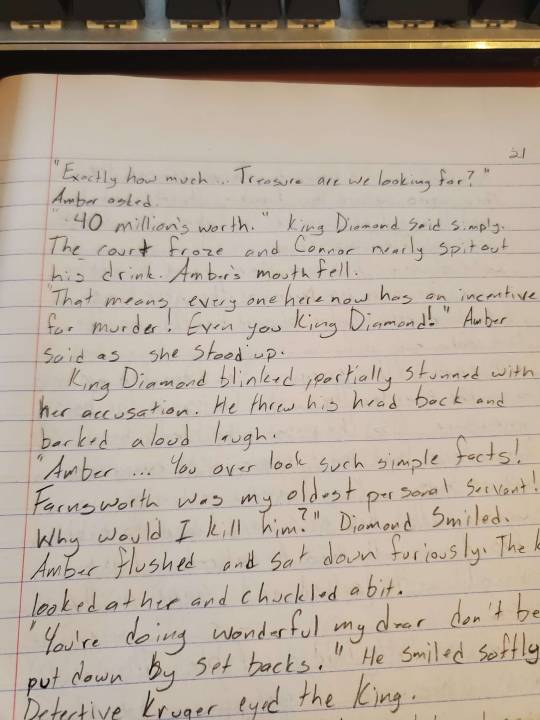 21
"Exactly how much... Treasure are we looking for?"
Amber asked.
"40 million's worth." King Diamond said simply.
The court froze and Connor nearly spit out
his drink. Amber's mouth fell.
"That means every one here now has an incentive
for murder! Even you King Diamond!" Amber
said as she stood up.
King Diamond blinked, partially stunned with
her accusation. He threw his head back and
barked a loud laugh.
"Amber ... You over look such simple facts!
Farnsworth was my oldest personal servant!
Why would I kill him?" Diamond smiled.
Amber flushed and sat down furiously. The
looked at her and chuckled a bit.
"You're doing wonderful my dear don't be
put down by set backs." He smiled softly
Detective Kruger eyed the King.